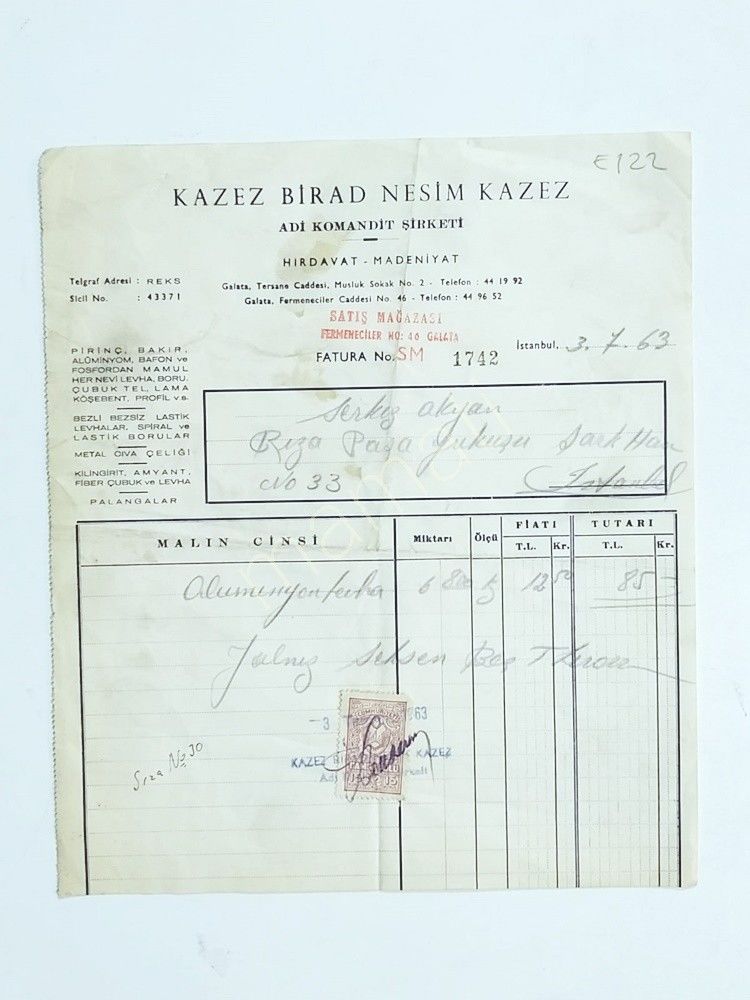 E122
KAZEZ BİRAD NESİM KAZEZ
ADİ KOMANDİT ŞİRKETİ
HIRDAVAT - MADENİYAT
Telgraf Adresi : REKS
Sicil No. : 43371
Galata, Tersane Caddesi, Musluk Sokak No. 2 - Telefon : 44 19 92
Galata, Fermeneciler Caddesi No. 46 - Telefon : 44 96 52
SATIŞ MAĞAZASI
FERMENECİLER NO: 46 GALATA
FATURA No. SM 1742
İstanbul, 3.7.63
PİRİNÇ, BAKIR,
ALÜMİNYOM, BAFON ve
FOSFORDAN MAMUL
HER NEVİ LEVHA, BORU,
ÇUBUK TEL, LAMA
KÖŞEBENT, PROFİL v.s.
BEZLİ BEZSİZ LASTİK
LEVHALAR, SPİRAL ve
LASTİK BORULAR
METAL CIVA ÇELİĞİ
KILINGIRIT, AMYANT,
FİBER ÇUBUK ve LEVHA
PALANGALAR
Serkiz Akyan
Rıza Paşa yukuşu Sark Han
No 33 İstanbul
MALIN CİNSİ Miktarı Ölçü FİATI TUTARI
T.L. Kr. T.L. Kr.
Aluminyon levha 6 800 k 12 50 85 -
Yalnız Seksen Beş Tl
-3 63
Sıra No 30
KAZEZ KAZEZ
Adi
15 15